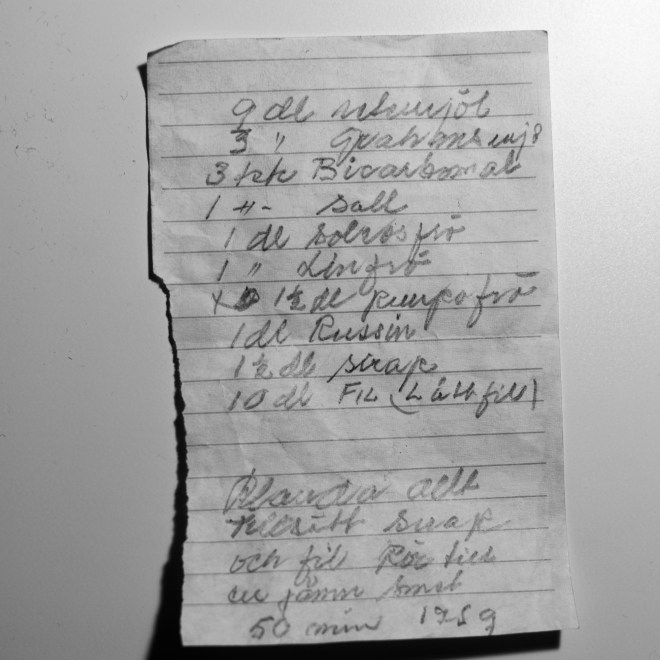 9 dl vetemjöl
3 " Grahamsmjö
3 tsk Bicarbonat
1 -"- Salt
1 dl Solrosfrö
1 " Linfrö
1½ dl pumpafrö
1 dl Russin
1½ dl sirap
10 dl FIL (Lättfil)
Blanda allt
tillsätt Sirap
och fil Rör till
en jämn smet
50 min 175 g